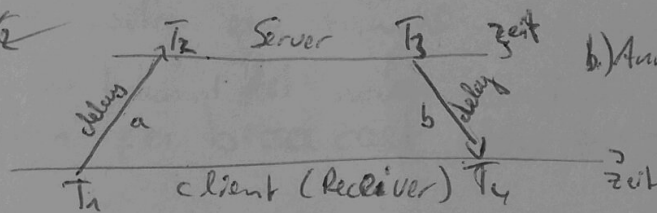 T2 Server T3 Zeit
b.)
delay a b delay
T1 Client (Receiver) T4 Zeit